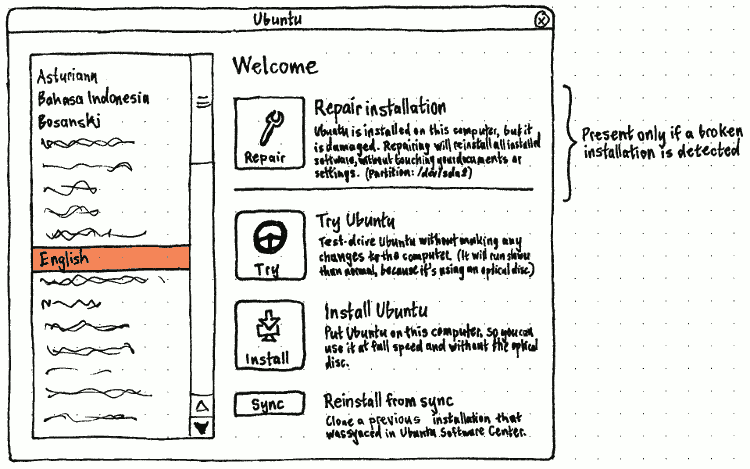 Ubuntu
Asturiann
Bahasa Indonesia
Bosanski
English
Welcome
Repair
Repair installation
Ubuntu is installed on this computer, but it
is damaged. Repairing will reinstall all installed
software, without touching your documents or
settings. (Partition: /dev/sda2)
Present only if a broken
installation is detected
Try
Try Ubuntu
Test-drive Ubuntu without making any
changes to the computer. (It will run slower
than normal, because it's using an optical disc.)
Install
Install Ubuntu
Put Ubuntu on this computer, so you can
use it at full speed and without the optical
disc.
Sync
Reinstall from sync
Clone a previous installation that
was synced in Ubuntu Software Center.